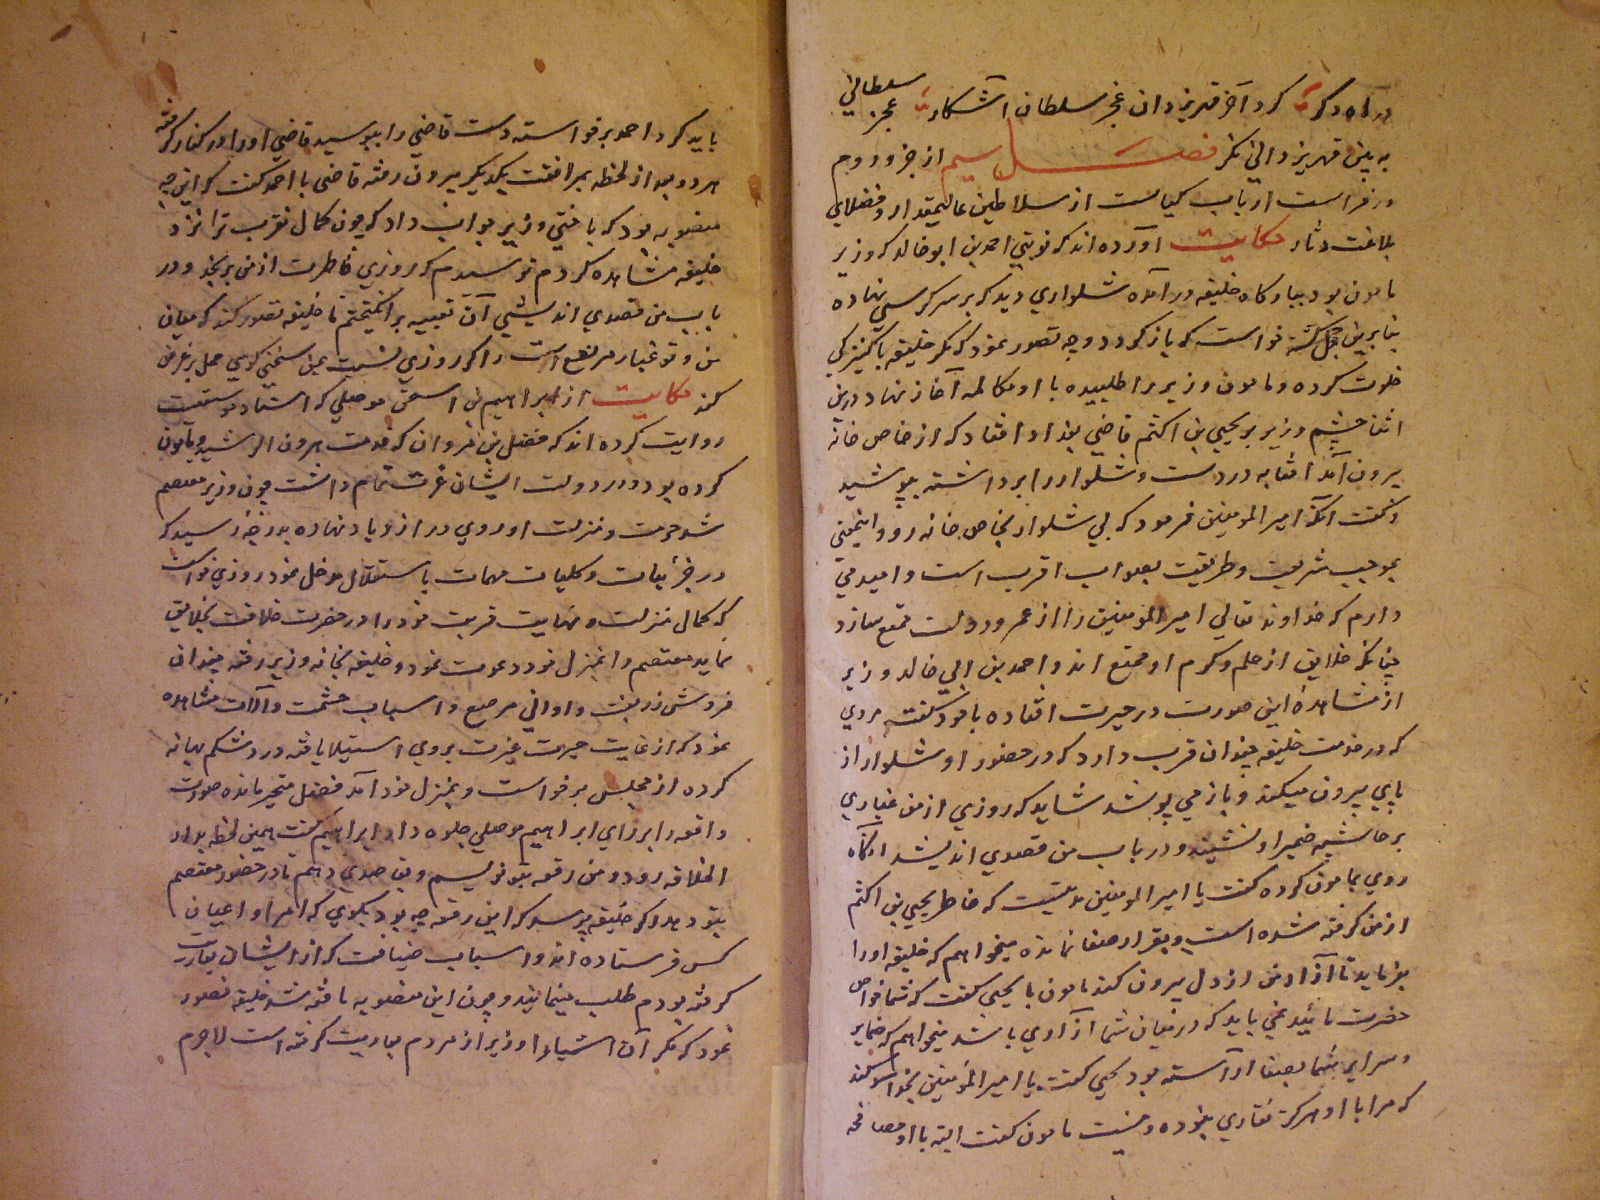 کرد آخر قهر یزدان عجز سلطان آشکار عجز سلطانی
به بین قهر یزدانی نگر فصل سیم از جزو دوم
در فراست ارباب کیاست از سلاطین عالیمقدار و فضلای
بلاغت دثار حکایت آورده اند که نوبتی احمد بن ابو خالد که وزیر
مامون بود ببارگاه خلیفه در آمده شلواری دید که بر سر کرسی نهاده
بنابرین خجل گشته خواست که باز گردد و چه تصور نمود که مگر خلیفه با کنیزکی
خلوت کرده و مامون وزیر را طلبیده با او مکالمه آغاز نهاد درین
اثنا چشم وزیر بر یحیی بن اکثم قاضی بغداد افتاد که از خاص خانه
بیرون آمد آفتابه در دست و شلوار را برداشته بپوشید
و گفت آنکه امیر المومنین فرمود که بی شلوار بخاص خانه رو و اینمعنی
بموجب شریعت و طریقت بصواب اقرب است و امید می
دارم که خداوند تعالی امیر المومنین را از عمر و دولت تمتع سازد
چنانکه خلایق از حلم و کرم او ممتع اند و احمد بن ابی خالد وزیر
از مشاهده این صورت در حیرت افتاده با خود گفت مردی
که در خدمت خلیفه چندان قرب دارد که در حضور او شلوار از
پای بیرون میکند و باز می پوشد شاید که روزی از من غباری
بر حاشیه ضمیر او نشیند و در باب من قصدی اندیشد آنگاه
روی بمامون کرده گفت یا امیر المومنین مدتیست که خاطر یحیی بن اکثم
از من گرفته شده است و بقرار صفا نمانده میخواهم که خلیفه او را
بفرماید تا آزار من از دل بیرون کند مامون با یحیی گفت که شما خواص
حضرت مائید نمی باید که در میان شما آزاری باشد میخواهم که ضمایر
و سرایر شما بصفا آراسته بود یحیی گفت یا امیر المومنین بخدا سوگند
که مرا با او هرگز نقاری نبوده و نیست مامون گفت البته با او مصافحه
باید کرد احمد برخواسته دست قاضی را ببوسید قاضی او را در کنار گرفته
هر دو بعد از لحظه بمرافقت یکدیگر بیرون رفته قاضی با احمد گفت که این چه
منصوبه بود که باختی وزیر جواب داد که چون کمال تقرب ترا نزد
خلیفه مشاهده کردم ترسیدم که روزی خاطرت از من برنجد و در
باب من قصدی اندیشی آن تعبیه برانگیختم تا خلیفه تصور کند که میان
من و تو غبار مرتفع است و اگر روزی نسبت بمن سخنی گوئی حمل بر غرض
کند حکایت از ابراهیم بن اسحق موصلی که استاد موسیقیست
روایت کرده اند که فضل بن مروان که خدمت هرون الرشید و مامون
کرده بود و در دولت ایشان عزت تمام داشت چون وزیر معتصم
شد حرمت و منزلت او روی در ازدیاد نهاده بدرجۀ رسید که
در جزئیات و کلیات مهمات باستقلال مدخل نمود روزی خواست
که کمال منزلت و نهایت قربت خود را در حضرت خلافت بخلایق
نماید معتصم را بمنزل خود دعوت نمود و خلیفه بخانه وزیر رفته چندان
فروش زربفت و اوانی مرصع و اسباب حشمت و آلات مشاهده
نمود که از غایت حیرت غیرت بروی استیلا یافته درد شکم بهانه
کرده از مجلس برخواست و بمنزل خود آمد فضل متحیر مانده صورت
واقعه را بر رای ابراهیم موصلی جلوه داد ابراهیم گفت همین لحظه بدار
الخلافه رود و من رقعه بتو نویسم و بتو دهم تا در حضور معتصم
بتو دهد اگر خلیفه پرسد که این رقعه چه بود بگوی که امرا و اعیان
کس فرستاده اند و اسباب ضیافت که از ایشان بعاریت
گرفته بودم طلب مینمایند و چون این منصوبه باخته شد خلیفه تصور
نمود که مگر آن اشیا را وزیر از مردم بعاریت گرفته است لاجرم